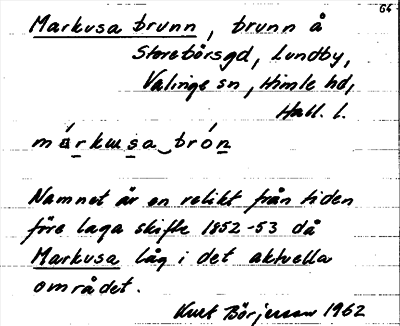 64
Markusa brunn, brunn å
Storebörsgd, Lundby,
Valinge sn, Himle hd,
Hall. l.
márkusa‿brón
Namnet är en relikt från tiden
före laga skifte 1852-53 då
Markusa låg i det aktuella
området.
Kurt Börjesson 1962